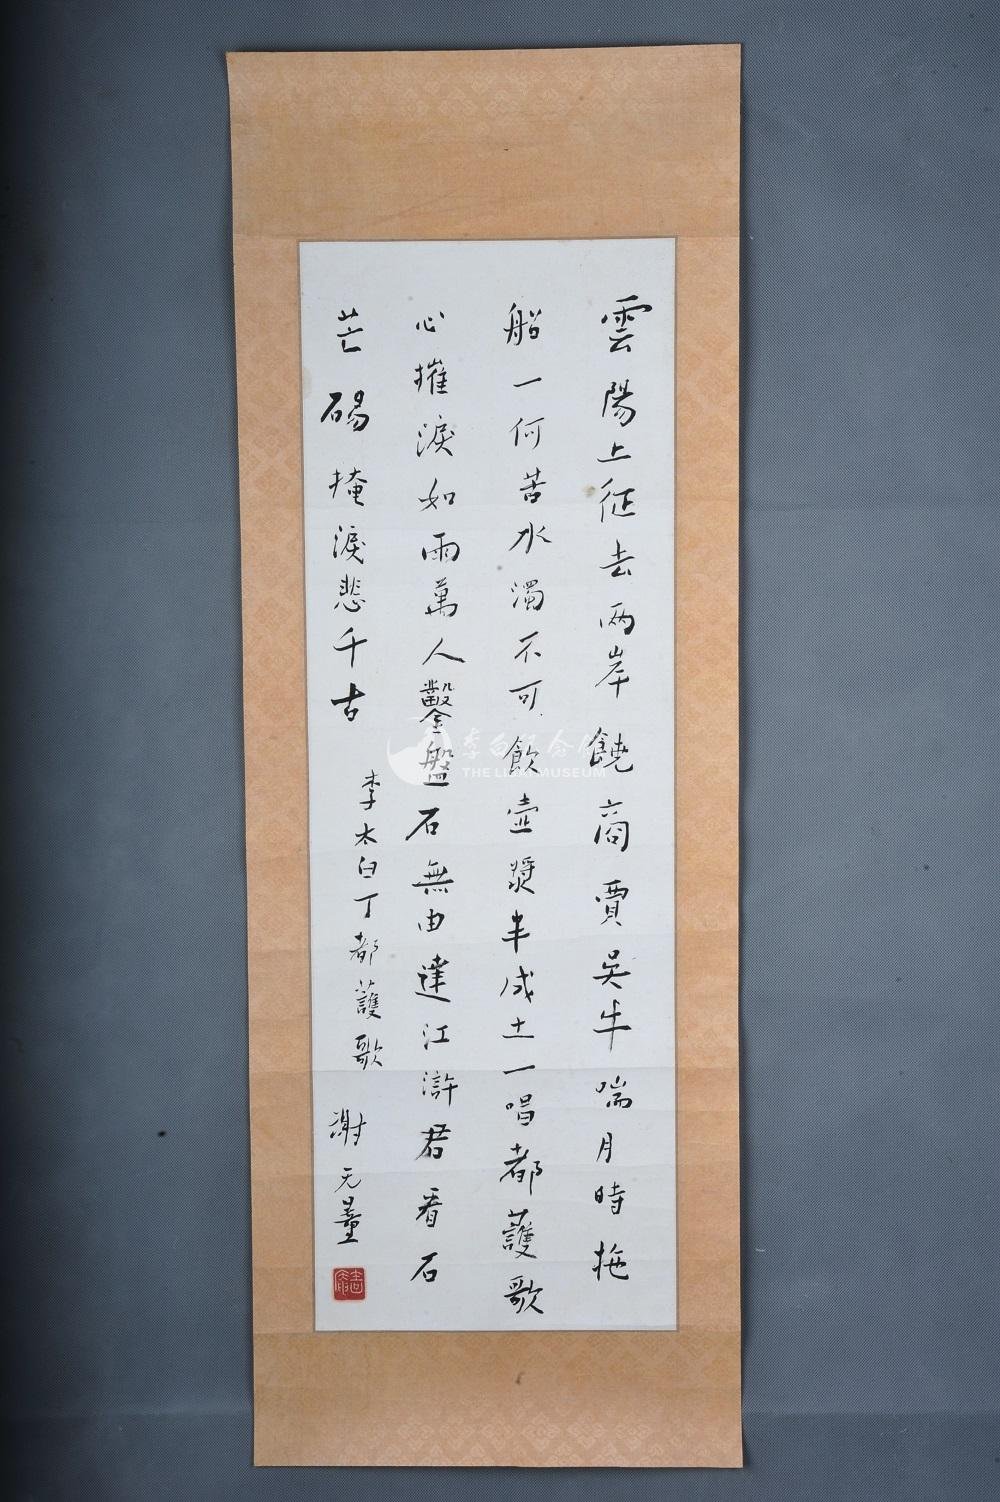 雲陽上征去两岸饒商賈吳牛喘月時拖
船一何苦水濁不可飲壺漿半成土一唱都護歌
心摧淚如雨萬人鑿盤石無由達江滸君看石
芒碭掩淚悲千古
李太白丁都護歌
謝无量
李白纪念馆
THE LIBAI MUSEUM